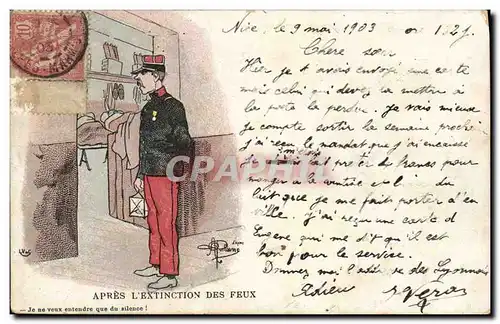 Nice, le 9 mai 1903
Chère
Hier je t'avais envoyé une carte
mais celui qui devez la mettre à
la poste la perdue. Je vais mieux
je compte sortir la semaine proche
j'ai reçu le mandat que j'ai encaissé
je fait de francs pour
manger à la du
lait que je me fait porter d'en
ville. J'ai reçu une carte d
Eugène qui me dit qu'il est
bon pour le service.
Donnez moi l' des Lyonnais
Adieu
APRÈS L'EXTINCTION DES FEUX
— Je ne veux entendre que du silence !
CPARAMA